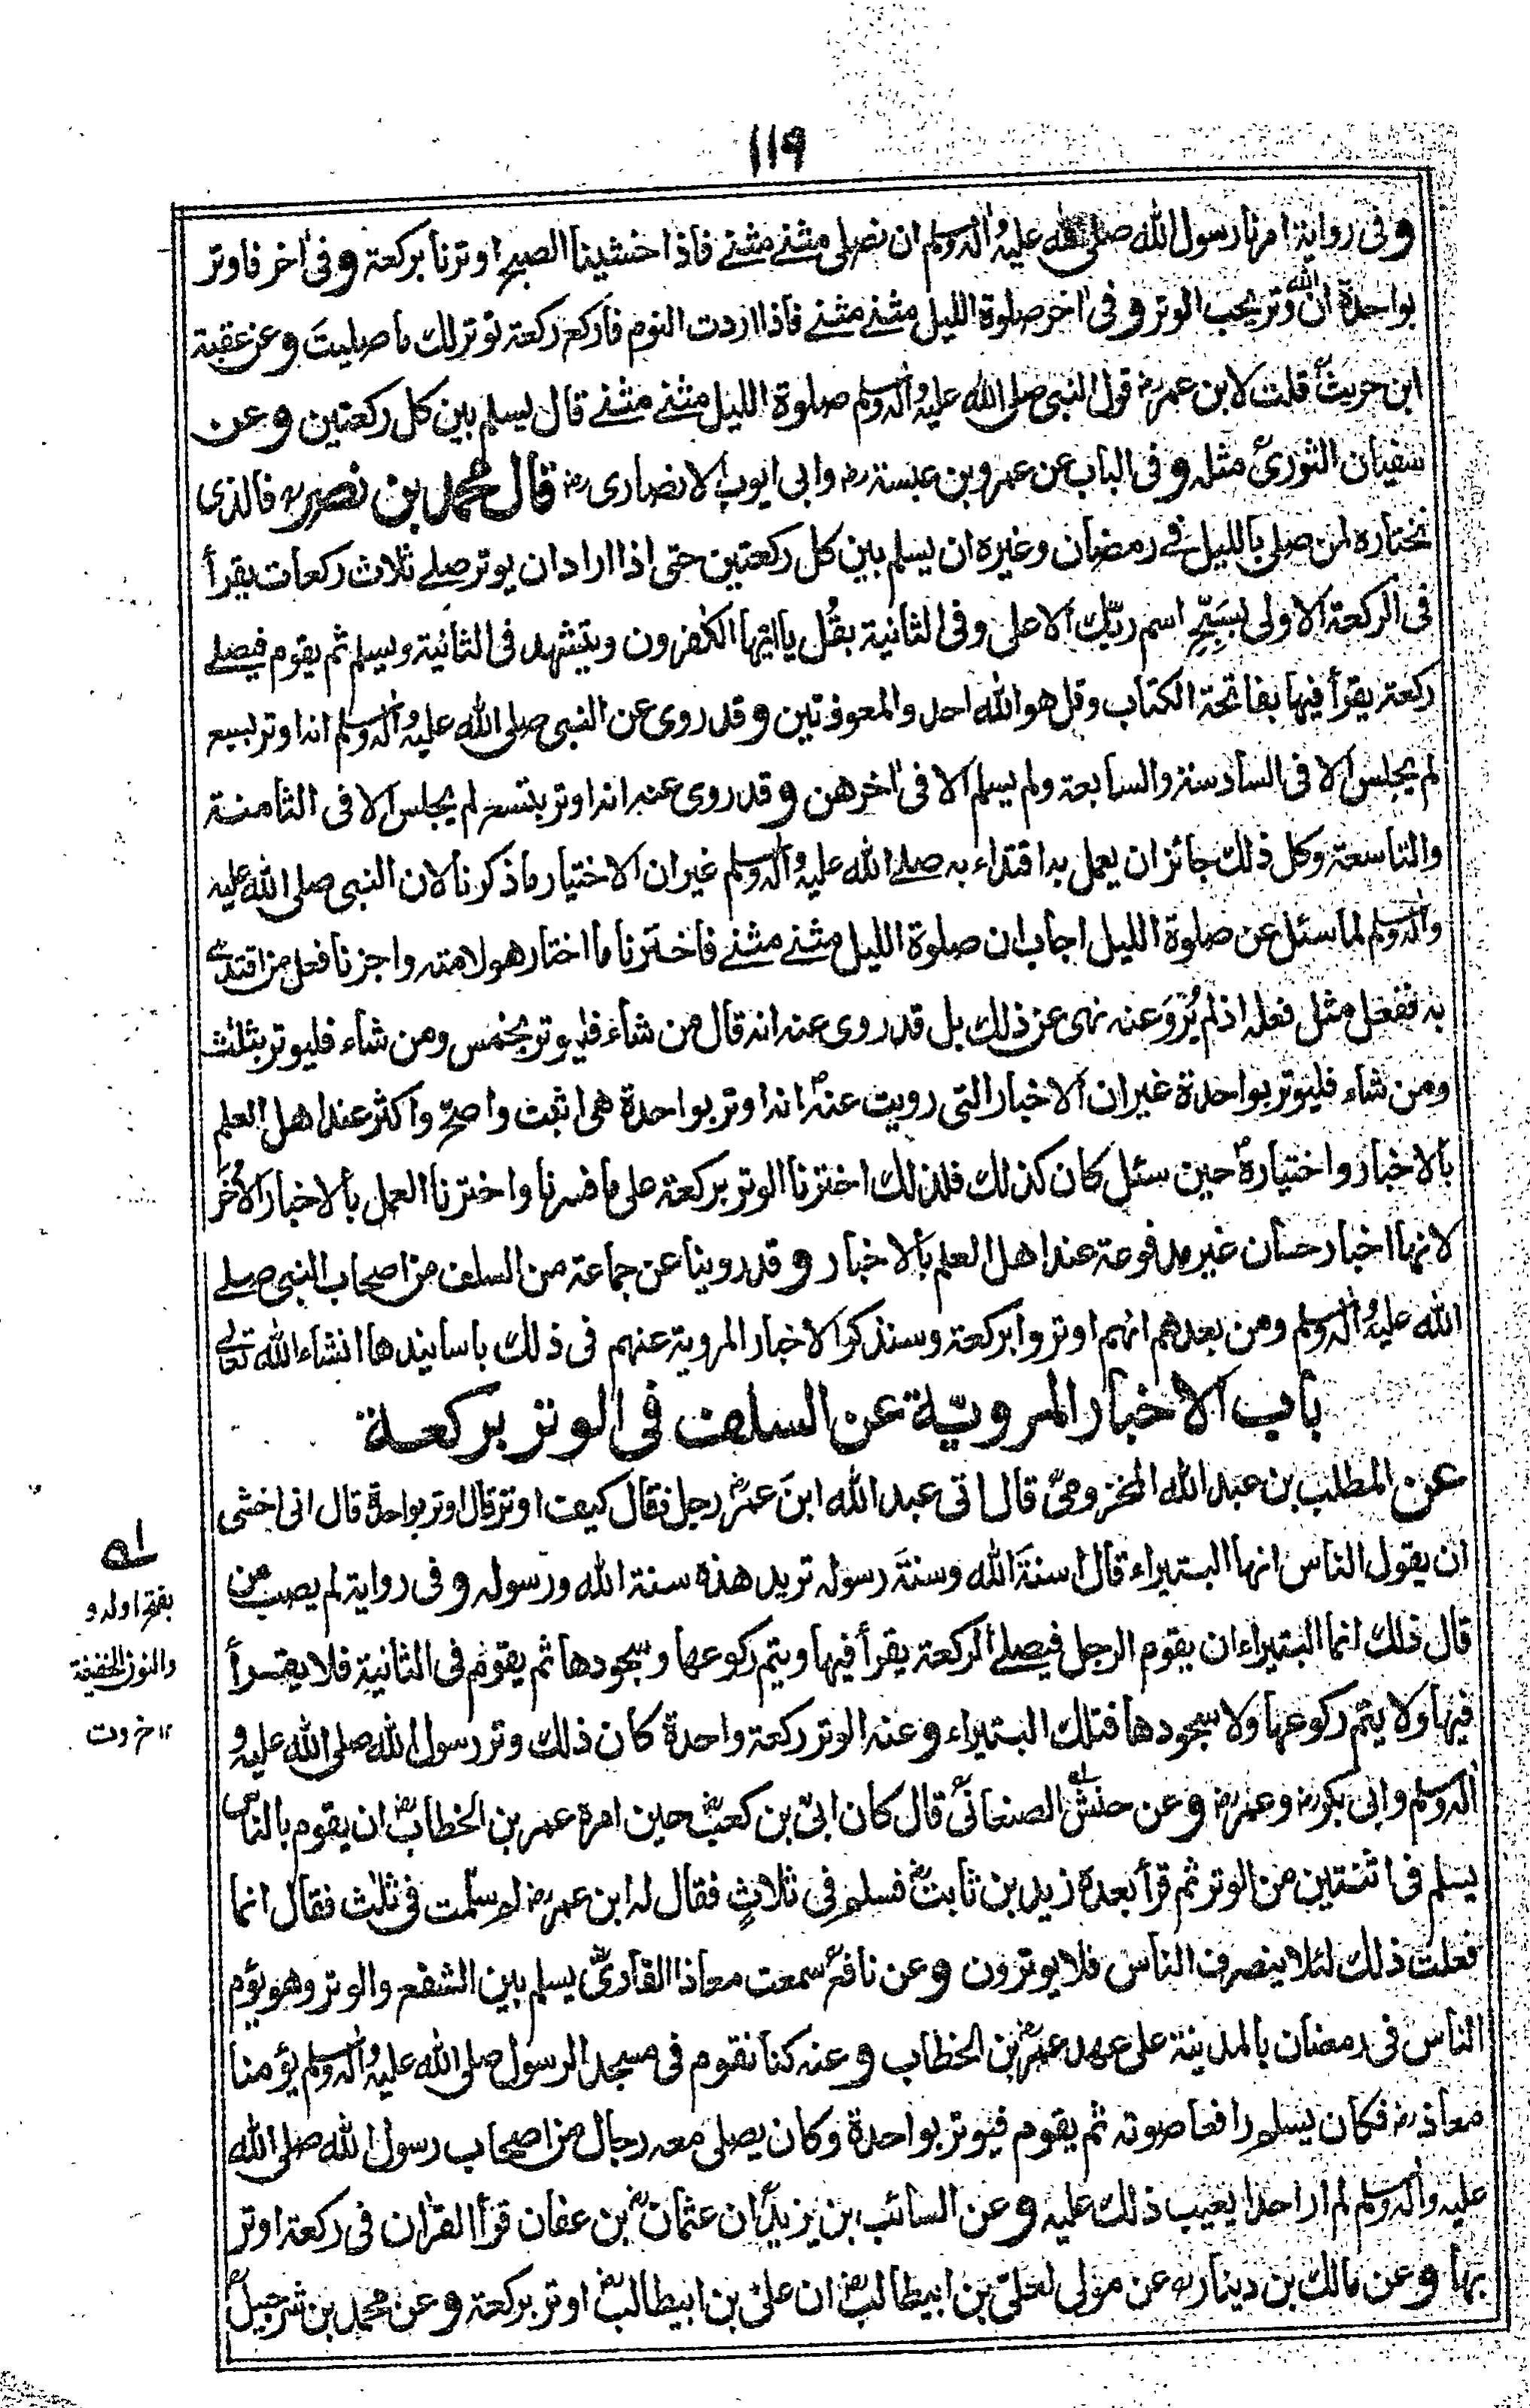 ١١٩
وفى رواية امرنا رسول الله صلى الله عليه واٰله وسلم ان نصلى مثنے مثنے فاذا خشينا الصبح اوترنا بركعة وفى اٰخر فاوتر
بواحدة ان الله وتر يحب الوتر وفى اٰخر صلوة الليل مثنے مثنے فاذا اردت النوم فاركع ركعة توتر لك ما صليتَ وعن عقبة
ابن حريثؒ قلت لابن عمرؓ قول النبى صلى الله عليه واٰله وسلم صلوة الليل مثنے مثنے قال يسلم بين كل ركعتين وعن
سفيان الثورىؒ مثله وفى الباب عن عمرو بن عبسةؓ وابى ايوب الانصارىؓ قال محمد بن نصرؒ فالذى
نختاره لمن صلى بالليل فے رمضان وغيره ان يسلم بين كل ركعتين حتى اذا اراد ان يوتر صلے ثلاث ركعات يقرأ
فى الركعة الاولى بسَبِّحِ اسم ربّك الاعلى وفى الثانية بقُل ياايّها الكٰفرون ويتشهد فى الثانية ويسلم ثم يقوم فيصلے
ركعة يقرأ فيها بفاتحة الكتاب وقل هو الله احد والمعوذتين وقد روى عن النبى صلى الله عليه واٰله وسلم انه اوتر بسبع
لم يجلس الا فى السادسة والسابعة ولم يسلم الا فى اٰخرهن وقد روى عنه انه اوتر بتسع لم يجلس الا فى الثامنة
والتاسعة وكل ذلك جائز ان يعمل به اقتداء به صلے الله عليه واٰله وسلم غير ان الاختيار ما ذكرنا لان النبى صلى الله عليه
واٰله وسلم لما سئل عن صلوة الليل اجاب ان صلوة الليل مثنے مثنے فاخترنا ما اختار هو لامته واجزنا فعل من اقتدےٰ
به ففعل مثل فعله اذ لم يُرْوَ عنه نهى عن ذلك بل قد روى عنه انه قال من شاء فليوتر بخمس ومن شاء فليوتر بثلٰث
ومن شاء فليوتر بواحدة غير ان الاخبار التى رويت عنهؐ انه اوتر بواحدة هى اثبت واصحّ واكثر عند اهل العلم
بالاخبار واختيارهؐ حين سئل كان كذلك فلذلك اخترنا الوتر بركعة على ما فسرنا واخترنا العمل بالاخبار الاُخَر
لانها اخبار حسان غير مدفوعة عند اهل العلم بالاخبار وقد روينا عن جماعة من السلف من اصحاب النبى صلے
الله عليه واٰله وسلم ومن بعدهم انهم اوتروا بركعة وسنذكر الاخبار المروية عنهم فى ذلك باسانيدها انشاء الله تعالےٰ
باب الاخبار المرويّة عن السلف فى الوتر بركعة
عن المطلب بن عبد الله المخزومىؒ قال اتى عبد الله ابنَ عمرؓ رجل فقال كيف اوتر قال اوتر بواحدة قال انى اخشى
ان يقول الناس انها البتيراء قال اسنةَ الله وسنةَ رسوله تريد هذه سنة الله ورسوله وفى رواية لم يصب من
قال ذلك انما البتيراء ان يقوم الرجل فيصلے الركعة يقرأ فيها ويتم ركوعها وسجودها ثم يقوم فى الثانية فلا يقرأ
فيها ولا يتم ركوعها ولا سجودها فتلك البتيراء وعنه الوتر ركعة واحدة كان ذلك وتر رسول الله صلى الله عليه و
اٰله وسلم وابى بكرؓ وعمرؓ وعن حنش له الصنعانىؒ قال كان ابىّ بن كعبؓ حين امره عمر بن الخطابؓ ان يقوم بالناس
يسلم فى اثنتين من الوتر ثم قرأ بعده زيد بن ثابتؓ فسلم فى ثلاثٍ فقال له ابن عمرؓ لم سلّمت فى ثلٰث فقال انما
فعلت ذلك لئلا ينصرف الناس فلا يوترون وعن نافعؒ سمعت معاذا القارىؓ يسلم بين الشفع والوتر وهو يؤم
الناس فى رمضان بالمدينة على عهد عمرؓ بن الخطاب وعنه كنا نقوم فى مسجد الرسول صلى الله عليه واٰله وسلم يؤمنا
معاذؓ فكان يسلم رافعا صوته ثم يقوم فيوتر بواحدة وكان يصلى معه رجال من اصحاب رسول الله صلى الله
عليه واٰله وسلم لم ار احدا يعيب ذلك عليه وعن السائب بن يزيدؓ ان عثمانؓ بن عفان قرأ القراٰن فى ركعة اوتر
بها وعن مالك بن دينارؒ عن مولى لعلىّ بن ابيطالبؓ ان علىّ بن ابيطالبؓ اوتر بركعة وعن محمد بن شرحبيلؒ
له
بفتح اوله و
والنون الخفيفة